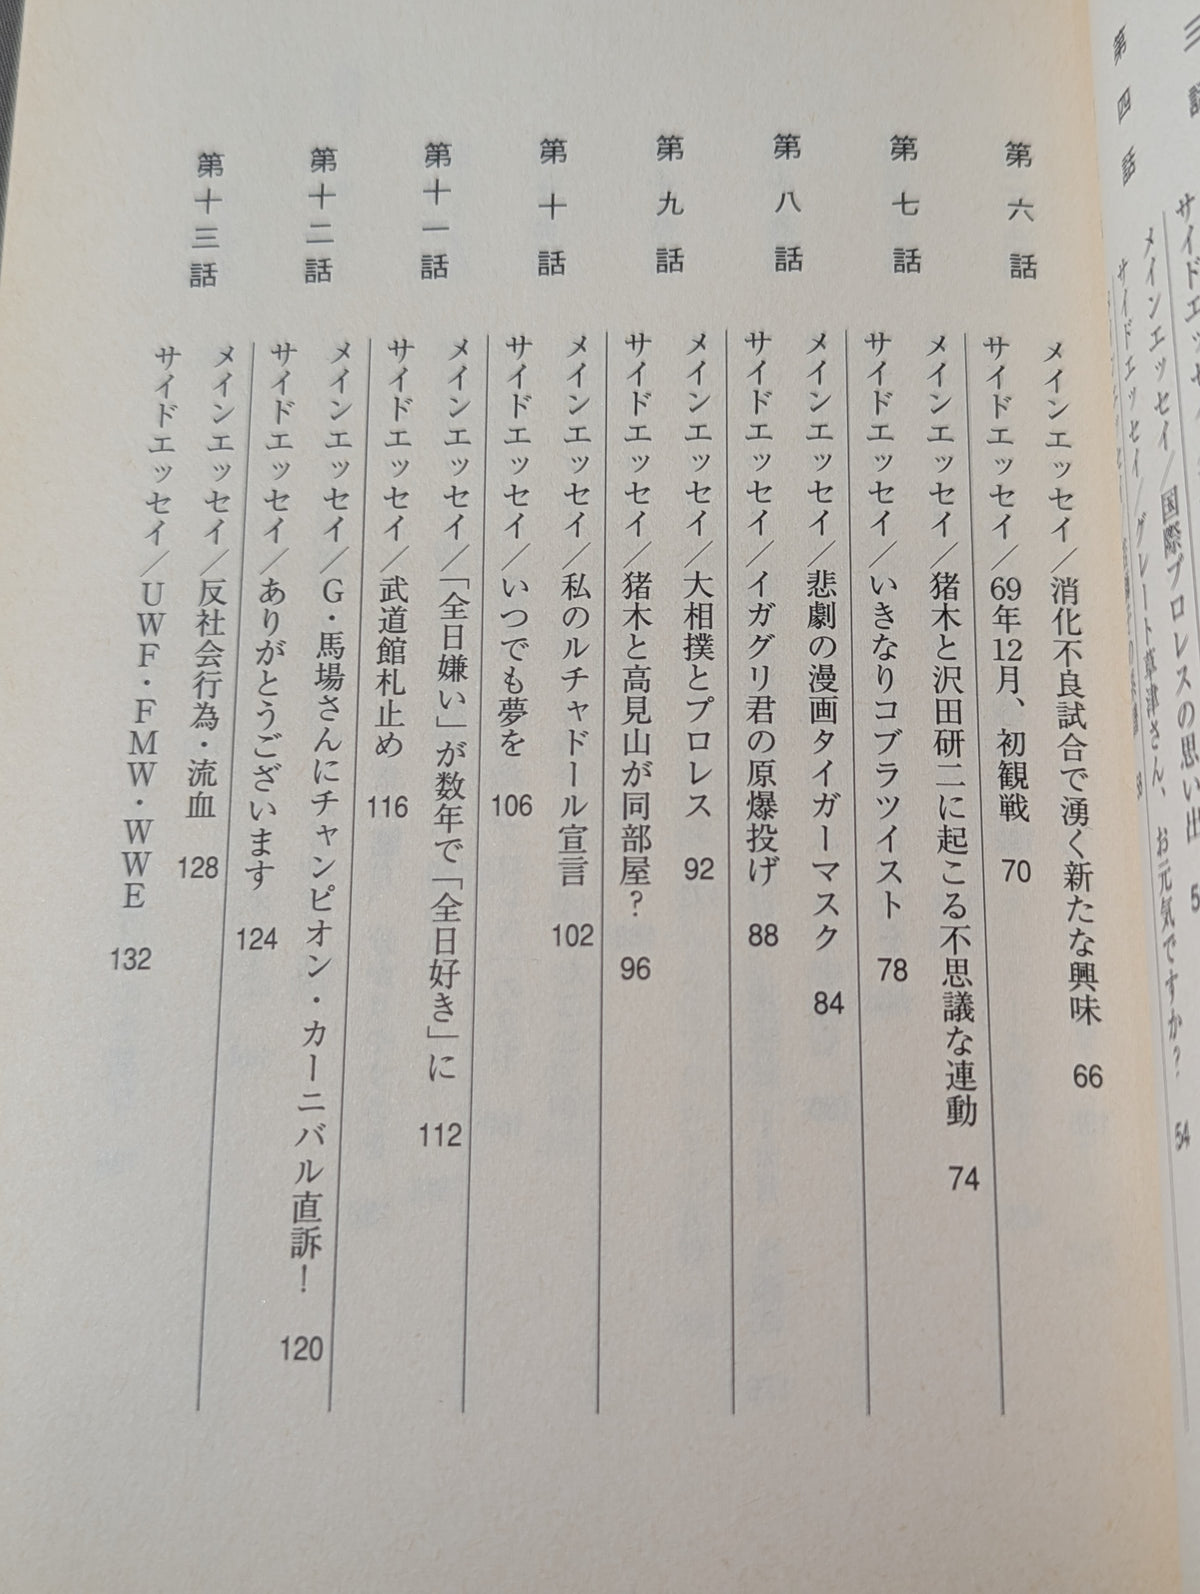 第四話
メインエッセイ／国際プロレスの思い出
サイドエッセイ／グレート草津さん、お元気ですか？ 54
第六話
メインエッセイ／消化不良試合で湧く新たな興味 66
サイドエッセイ／69年12月、初観戦 70
第七話
メインエッセイ／猪木と沢田研二に起こる不思議な連動 74
サイドエッセイ／いきなりコブラツイスト 78
第八話
メインエッセイ／悲劇の漫画タイガーマスク 84
サイドエッセイ／イガグリ君の原爆投げ 88
第九話
メインエッセイ／大相撲とプロレス 92
サイドエッセイ／猪木と高見山が同部屋？ 96
第十話
メインエッセイ／私のルチャドール宣言 102
サイドエッセイ／いつでも夢を 106
第十一話
メインエッセイ／「全日嫌い」が数年で「全日好き」に 112
サイドエッセイ／武道館札止め 116
第十二話
メインエッセイ／G・馬場さんにチャンピオン・カーニバル直訴！ 120
サイドエッセイ／ありがとうございます 124
第十三話
メインエッセイ／反社会行為・流血 128
サイドエッセイ／UWF・FMW・WWE 132